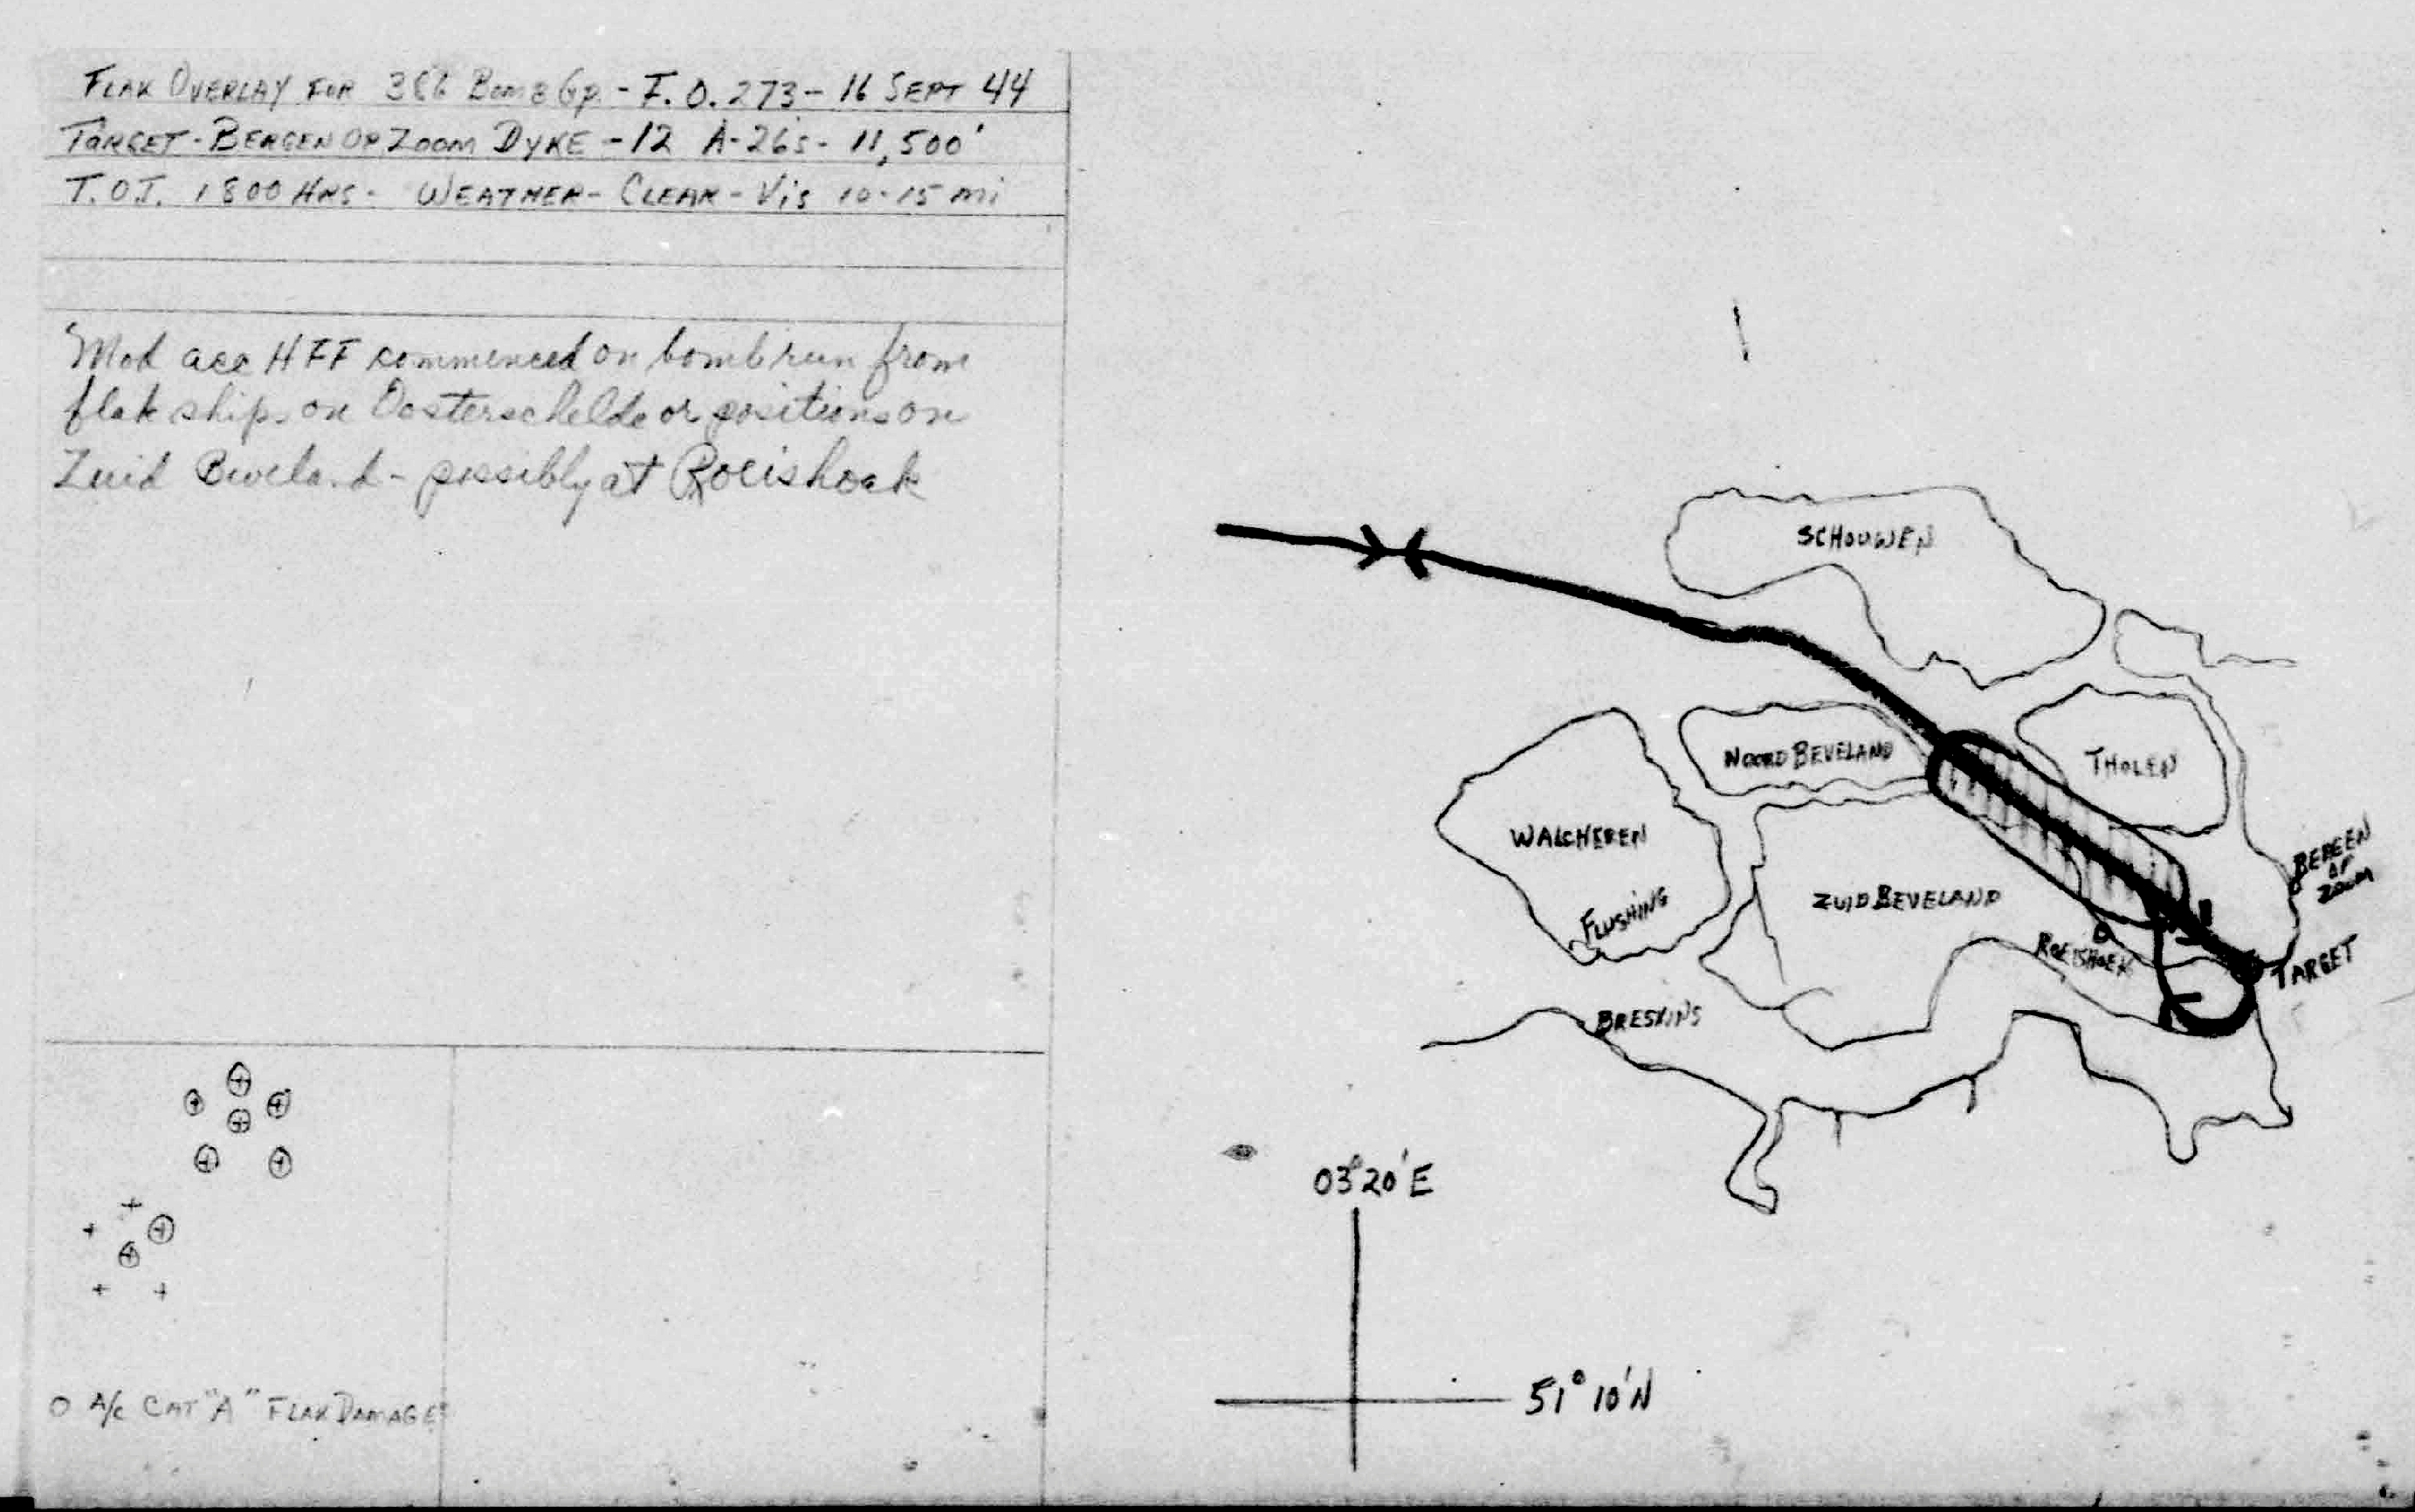 FLAK OVERLAY FOR 386 BOMB Gp. - F.O. 273 - 16 SEPT 44
TARGET - BERGEN OP ZOOM DYKE - 12 A-26s - 11,500'
T.O.T. 1800 HRS - WEATHER - CLEAR - Vis 10-15 mi
Mod acc HFF commenced on bomb run from
flak ships on Oosterschelde or positions on
Zuid Beveland - possibly at Roeishoek
SCHOUWEN
NOORD BEVELAND
THOLEN
WALCHEREN
BERGEN
OP
ZOOM
ZUID BEVELAND
FLUSHING
ROEISHOEK
TARGET
BRESKINS
03°20'E
51°10'N
O A/c CAT "A" FLAK DAMAGE